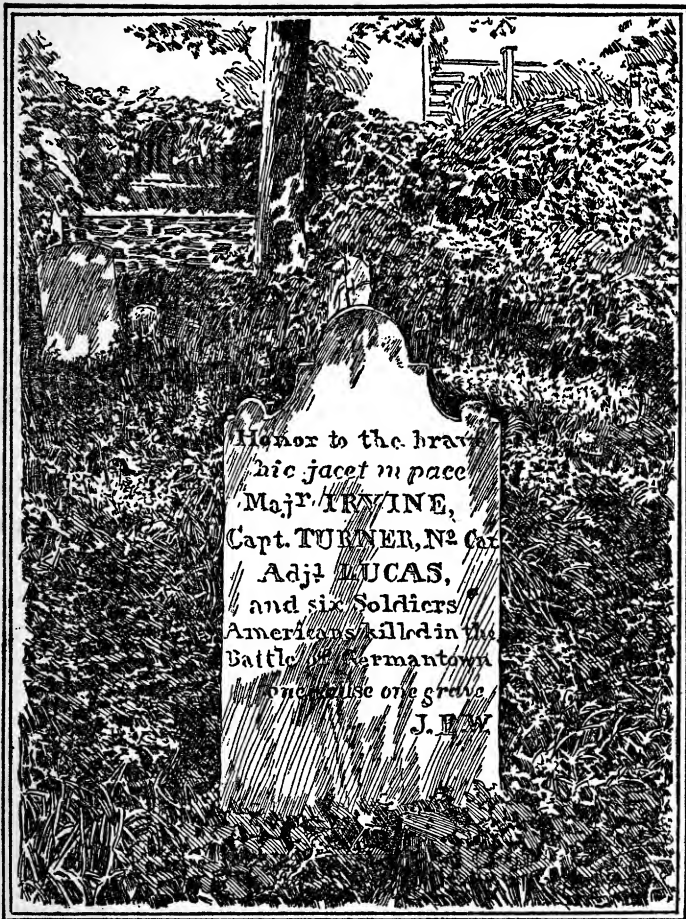 Honor to the brave
hic jacet in pace
Majr. IRVINE,
Capt. TURNER, No. Car
Adjt LUCAS,
and six Soldiers
Americans killed in the
Battle of Germantown
one cause one grave
J. F. W.